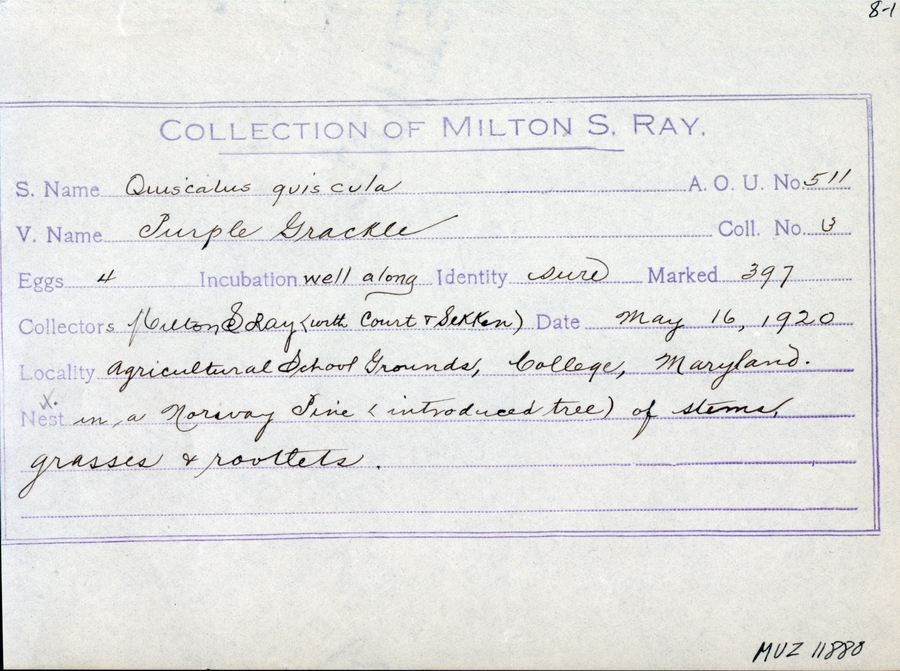 8-1
COLLECTION OF MILTON S. RAY.
S. Name Quiscalus quiscula A. O. U. No. 511
V. Name Purple Grackle Coll. No.
Eggs 4 Incubation well along Identity sure Marked 397
Collectors Milton S Ray (with Court & Sekken) Date May 16, 1920
Locality Agricultural School Grounds, College, Maryland.
x.
Nest in a Norway Pine (introduced tree) of stems,
grasses & roottets.
MUZ 11880